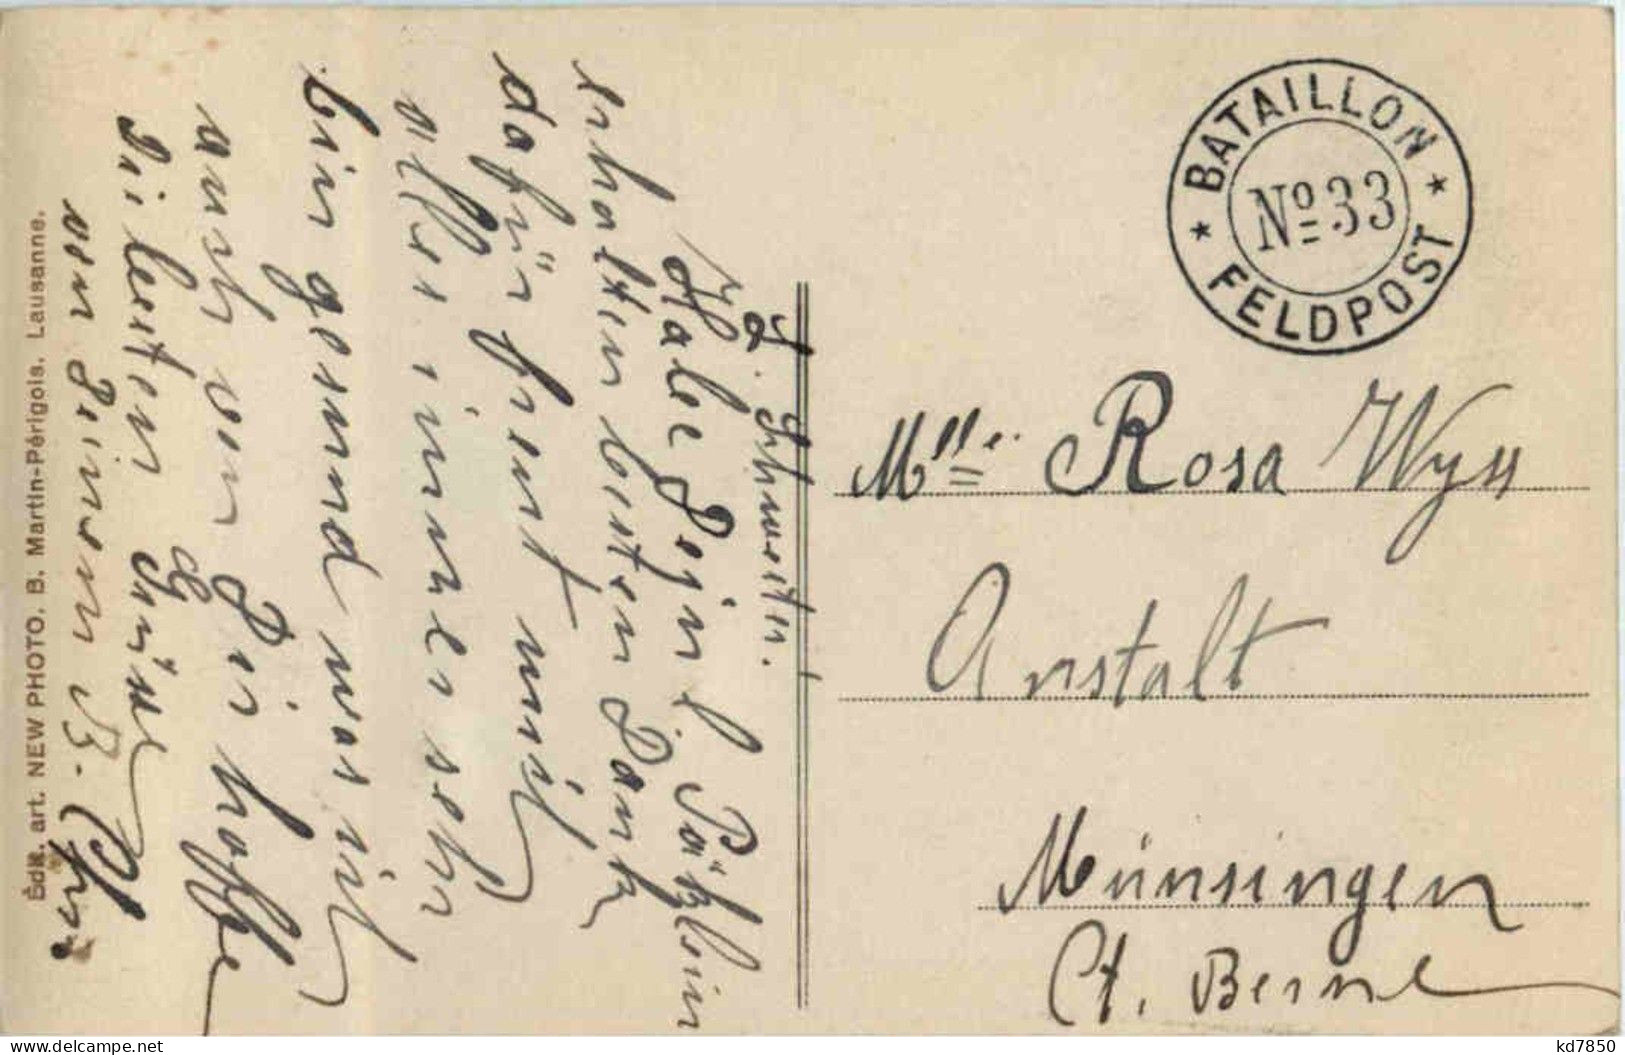 BATAILLON
No 33
FELDPOST
Mlle. Rosa Wyss
Anstalt
Münsingen
Ct. Berne
L. Schwester!
Habe Dein l. Päcklein
erhalten besten Dank
dafür freut mich
alles immer sehr
bin gesund was ich
auch von Dir hoffe
Die besten Grüsse
von Deinem B.
Édit. art. NEW PHOTO. B. Martin-Périgois. Lausanne.
kd7850